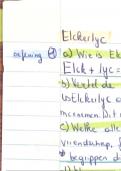 Elckerlyc
oefening
a) Wie is Elk
Elck + lyc =
b) Vertel de
Elckerlyc
meenemen. Dit
c) Welke alle
vriendschap,
begrippen d